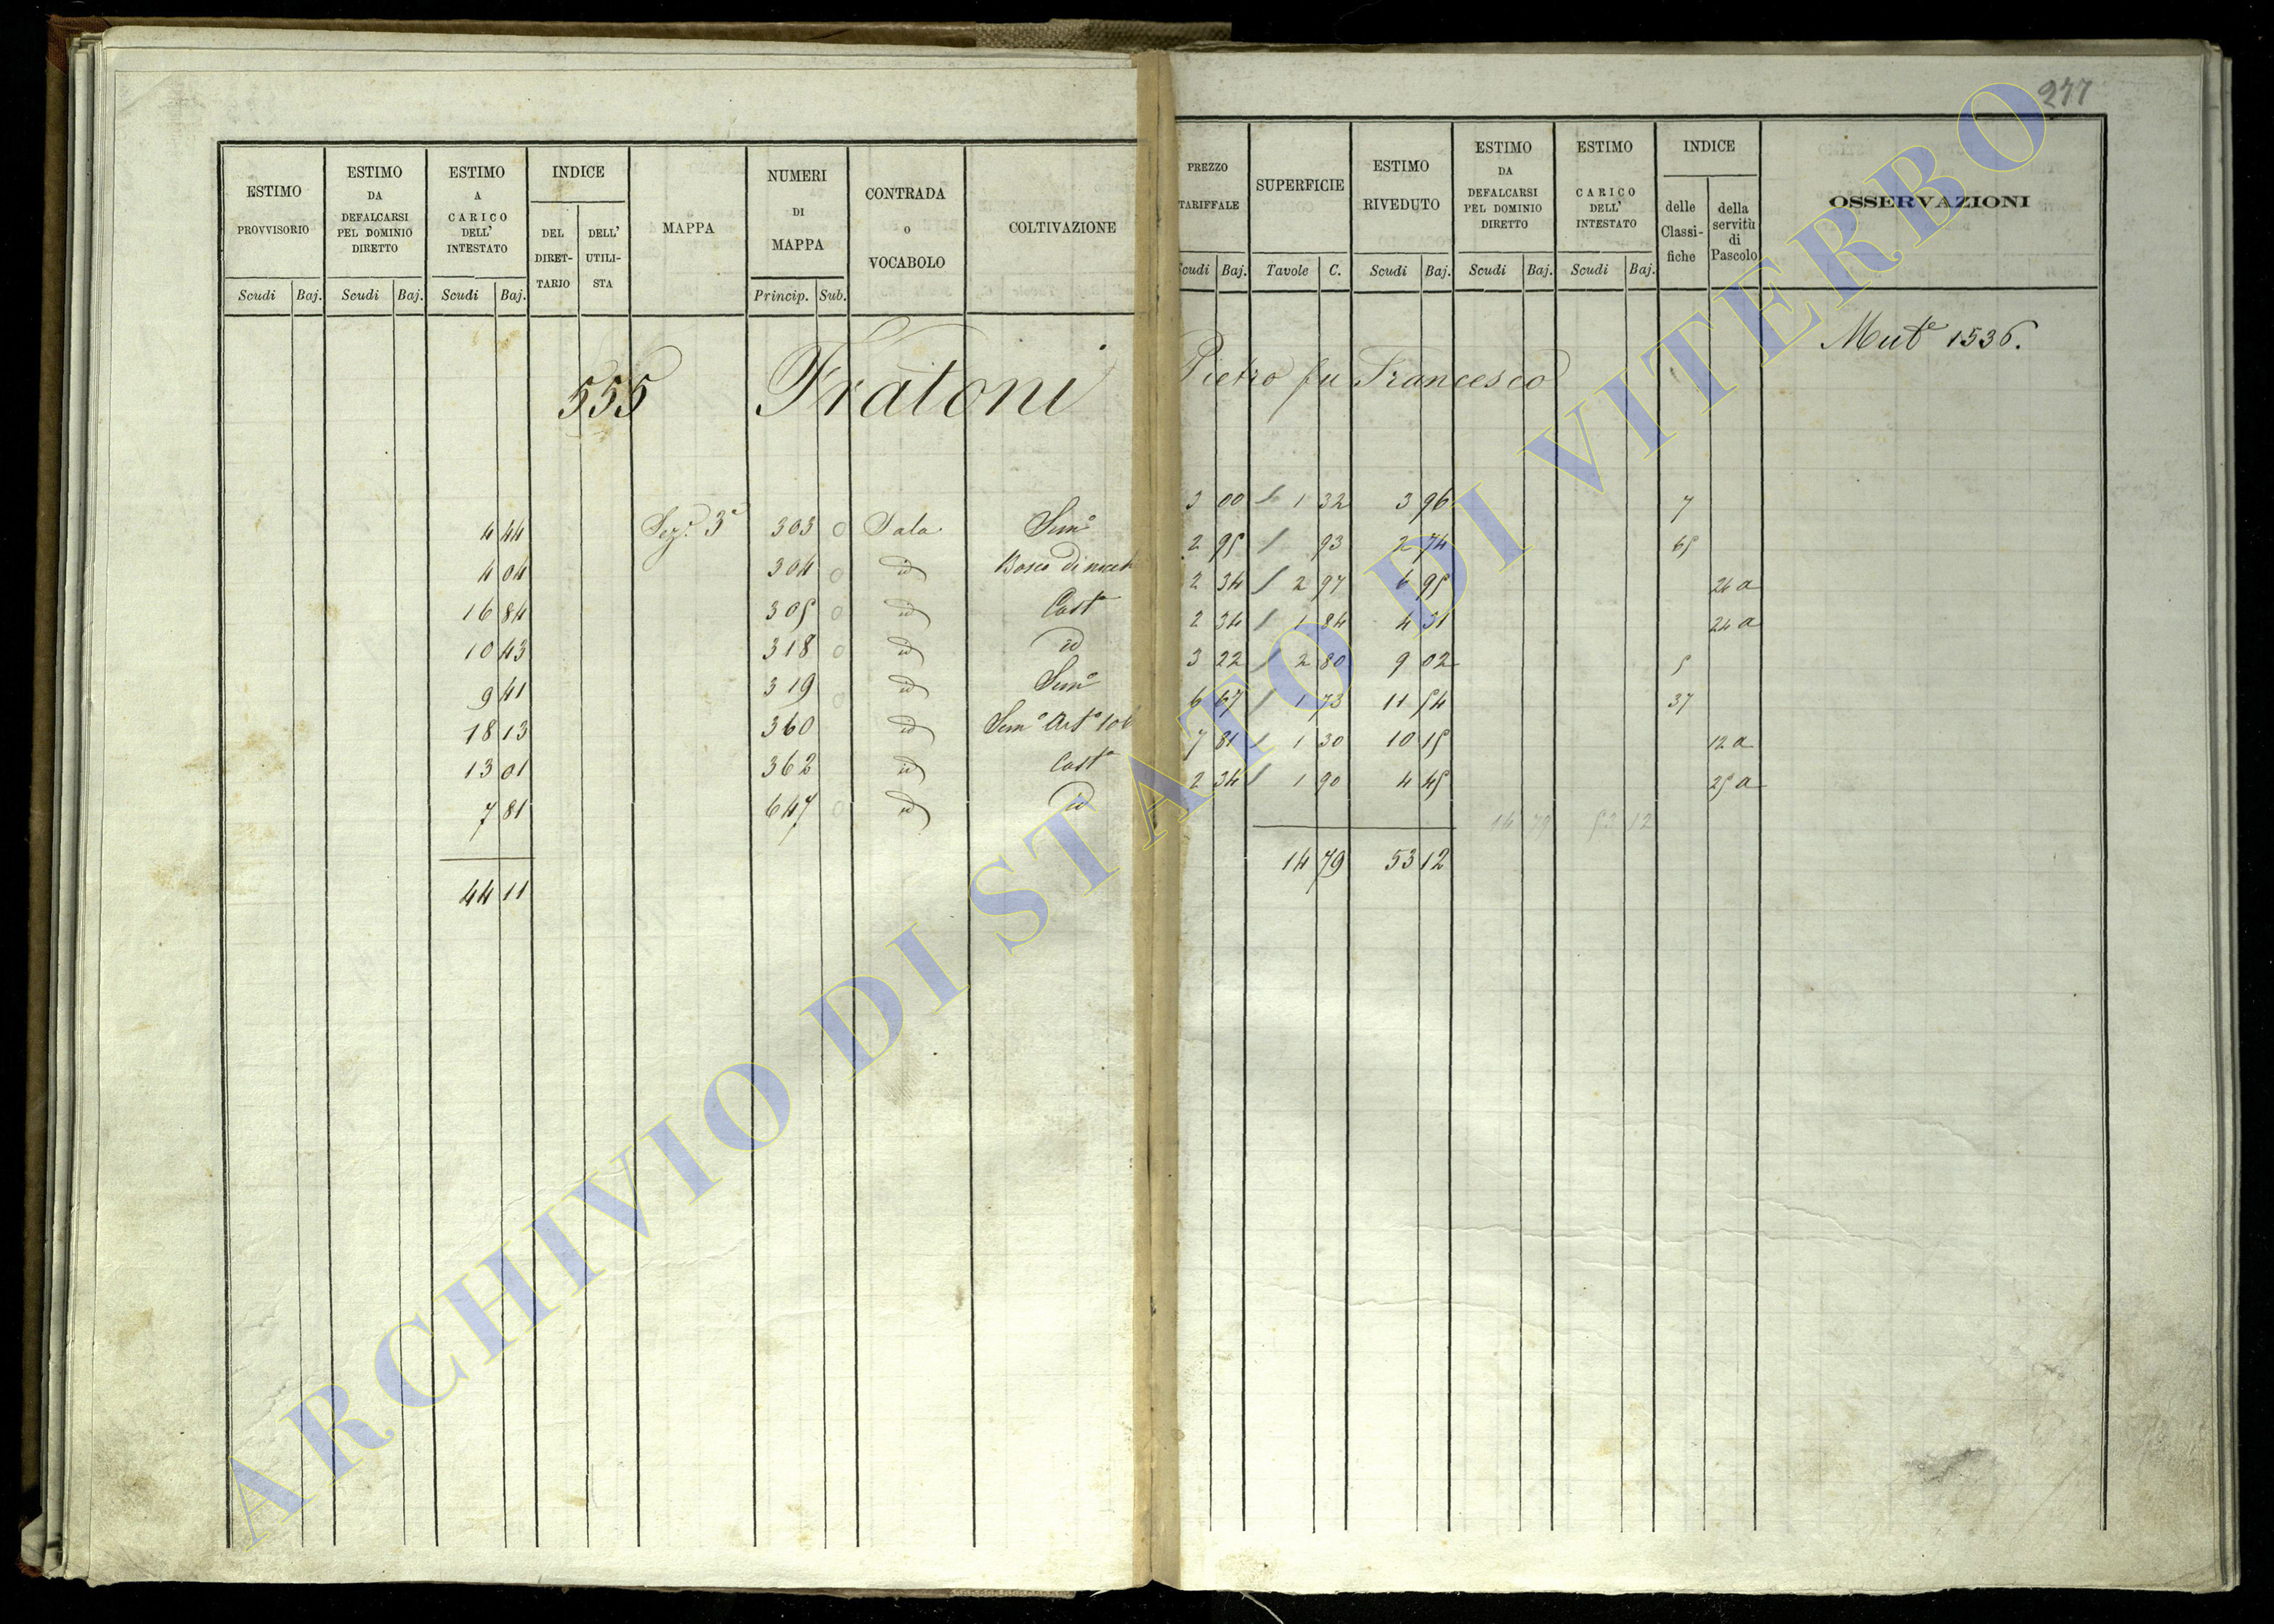 277
ESTIMO PROVVISORIO Scudi Baj.
ESTIMO DA DEFALCARSI PEL DOMINIO DIRETTO Scudi Baj.
ESTIMO A CARICO DELL' INTESTATO Scudi Baj.
INDICE DEL DIRET-TARIO DELL' UTILI-STA
MAPPA
NUMERI DI MAPPA Princip. Sub.
CONTRADA o VOCABOLO
COLTIVAZIONE
PREZZO TARIFFALE Scudi Baj.
SUPERFICIE Tavole C.
ESTIMO RIVEDUTO Scudi Baj.
ESTIMO DA DEFALCARSI PEL DOMINIO DIRETTO Scudi Baj.
ESTIMO CARICO DELL' INTESTATO Scudi Baj.
INDICE delle Classi-fiche della servitù di Pascolo
OSSERVAZIONI
Mut.e 1536.
555 Fratoni Pietro fu Francesco
4 44 Sez.e 3a 303 0 Sala Sem.o 3 00 1 32 3 96 7
4 04 304 0 id Bosco di 2 95 93 2 74 65
16 84 305 0 id Cast.o 2 34 2 97 6 95 24 a
10 43 318 0 id id 2 34 1 84 4 31 24 a
9 41 319 0 id Sem.o 3 22 2 80 9 02 5
18 13 360 id Sem.o 6 67 1 73 11 54 37
13 01 362 id Cast.o 7 81 1 30 10 15 12 a
7 81 647 0 id id 2 34 1 90 4 45 25 a
14 79 53 12
44 11 14 79 53 12
ARCHIVIO DI STATO DI VITERBO